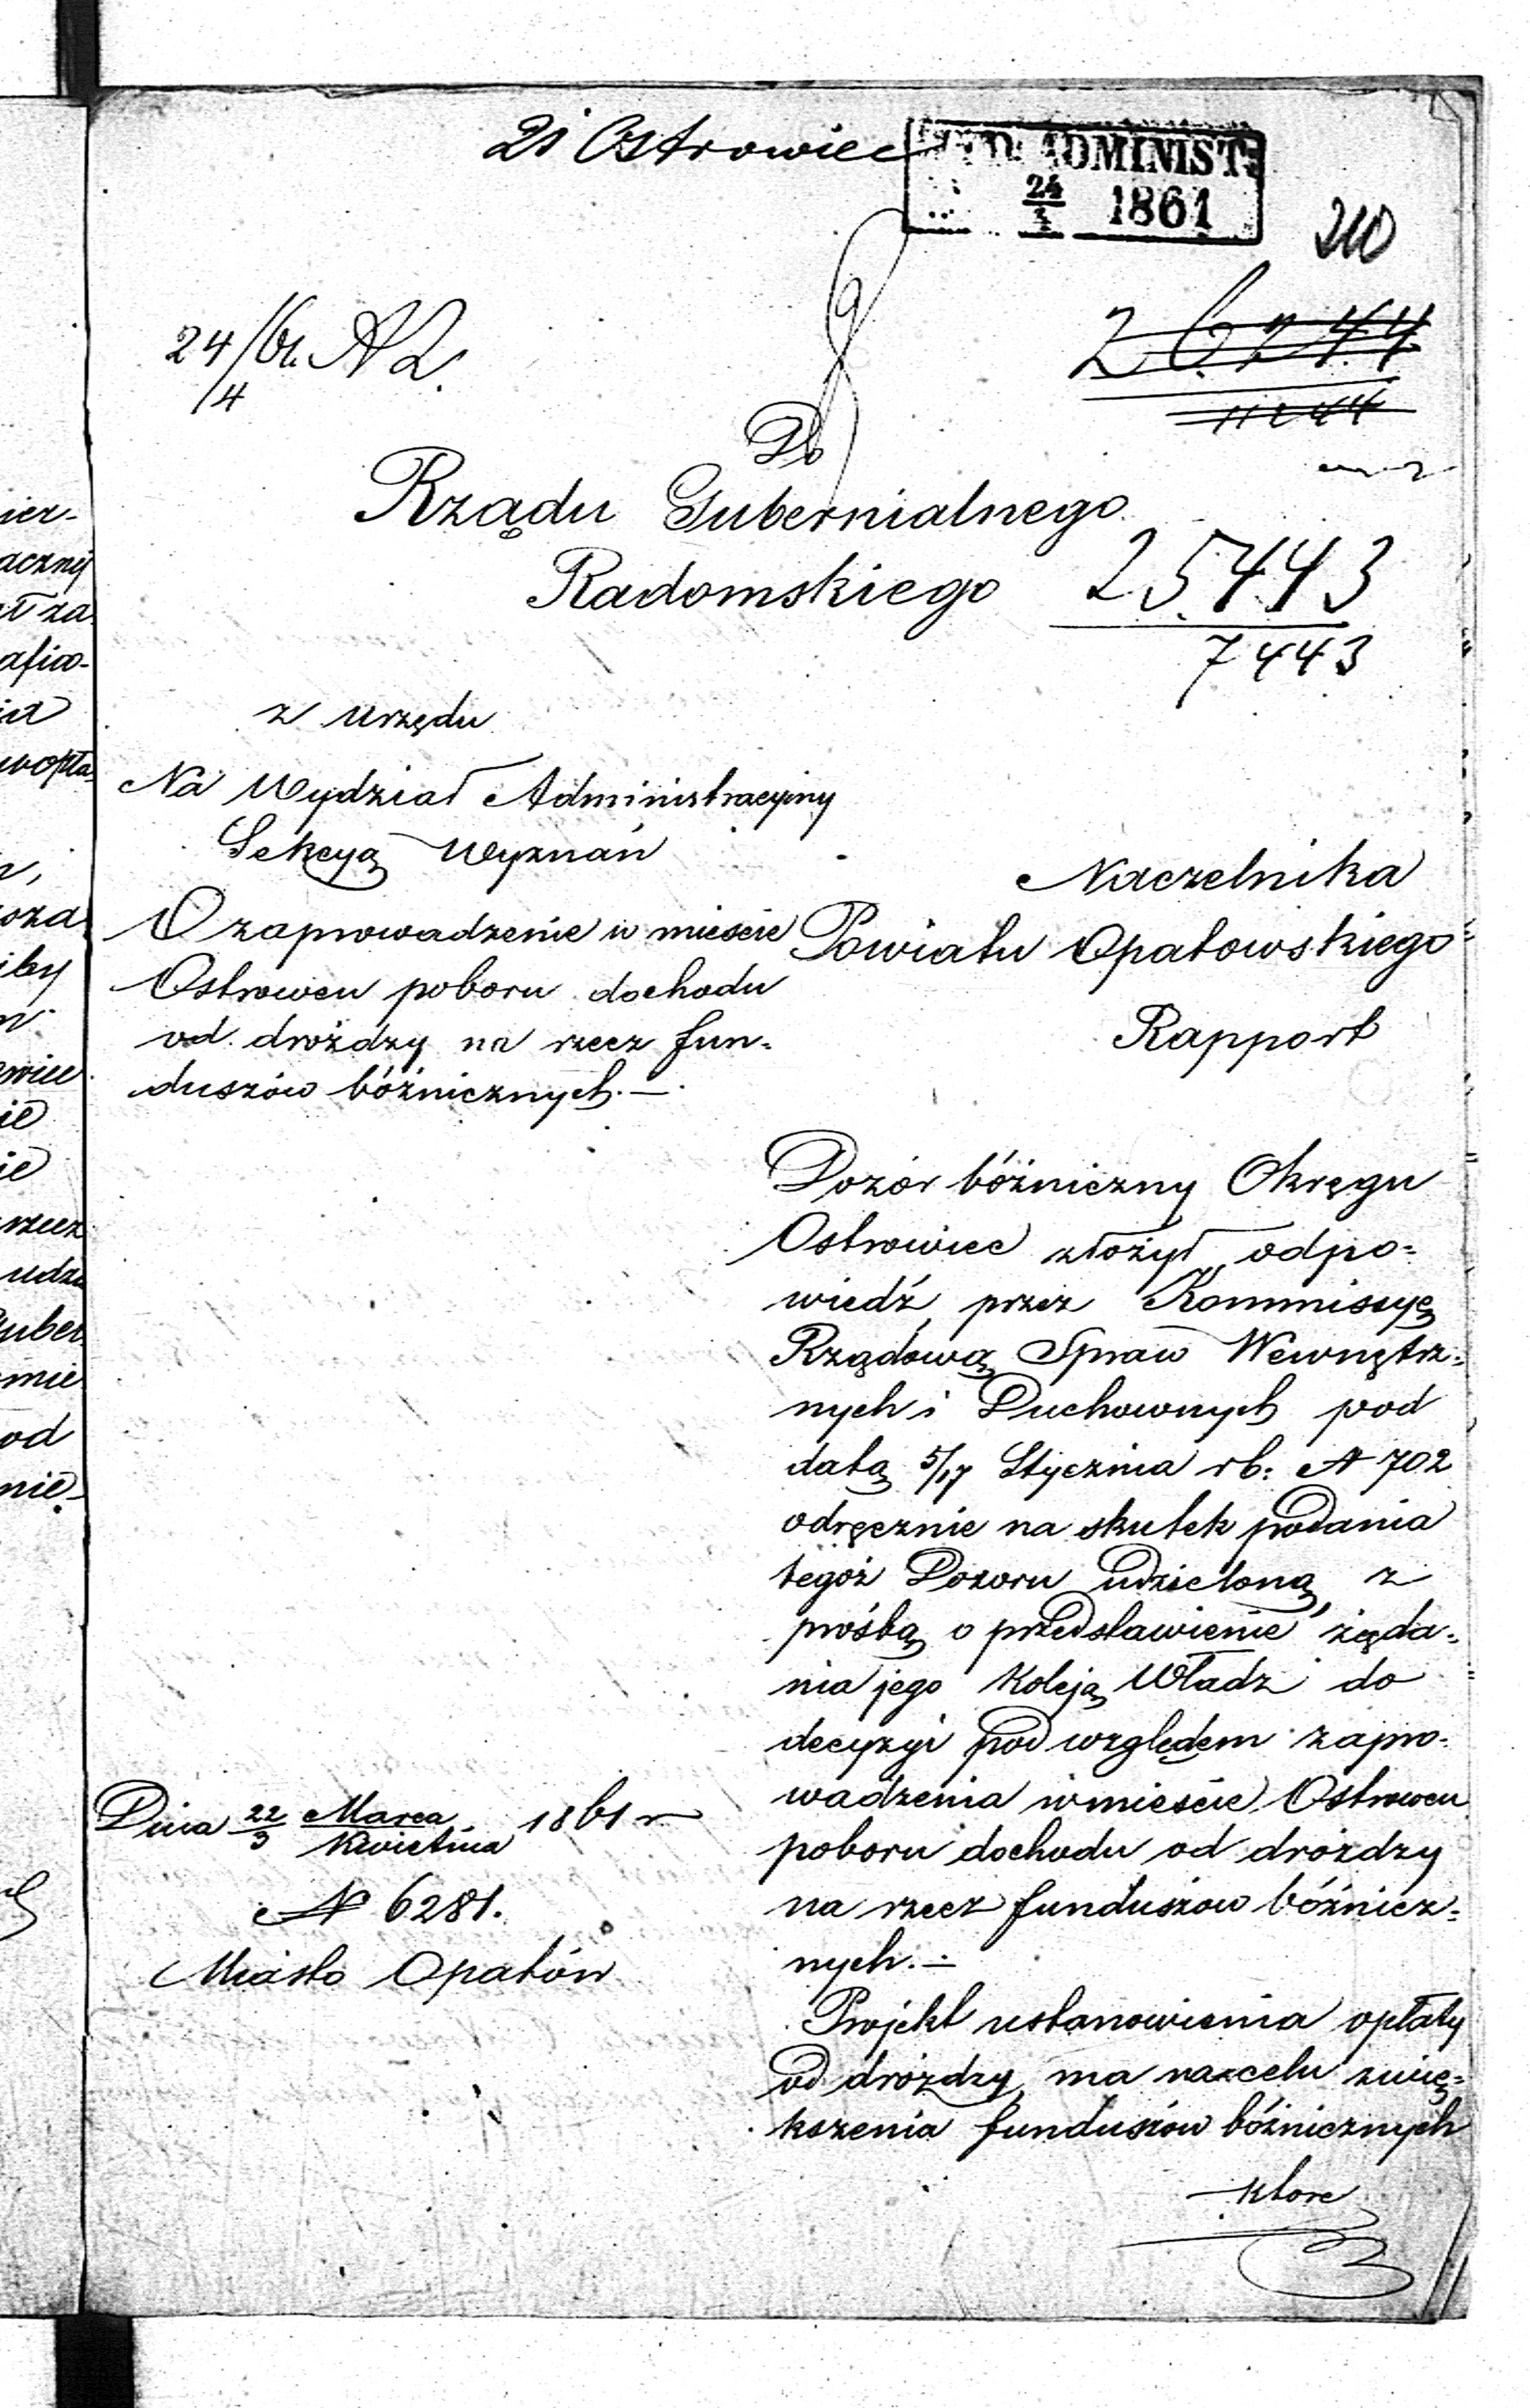 21 Ostrowiec
ADMINIST.
1861
210
24/4 61. A2.
26244
11244
Do
Rządu Gubernialnego
Radomskiego
25443
7443
z urzędu
Na Wydział Administracyjny
Sekcyą Wyznań
O zaprowadzenie w mieście
Ostrowcu poboru dochodu
od drożdzy na rzecz fun=
duszów bóżnicznych.—
Naczelnika
Powiatu Opatowskiego
Rapport
Dozór bóżniczny Okręgu
Ostrowiec złożył odpo=
wiedź, przez Kommissyę
Rządową Spraw Wewnętrz=
nych i Duchownych pod
datą 5/17 Stycznia rb: N 702
odręcznie na skutek podania
tegoż Dozoru udzieloną, z
prośbą o przedstawienie żąda=
nia jego koleją Władz do
decyzyi pod względem zapro=
wadzenia w mieście Ostrowcu
poboru dochodu od drożdzy
na rzecz funduszow bóżnicz=
nych.—
Projekt ustanowienia opłaty
od drożdzy, ma na celu zwię=
kszenia funduszów bóżnicznych
które
Dnia 22/3 Marca/Kwietnia 1861 r
N 6281.
Miasto Opatów